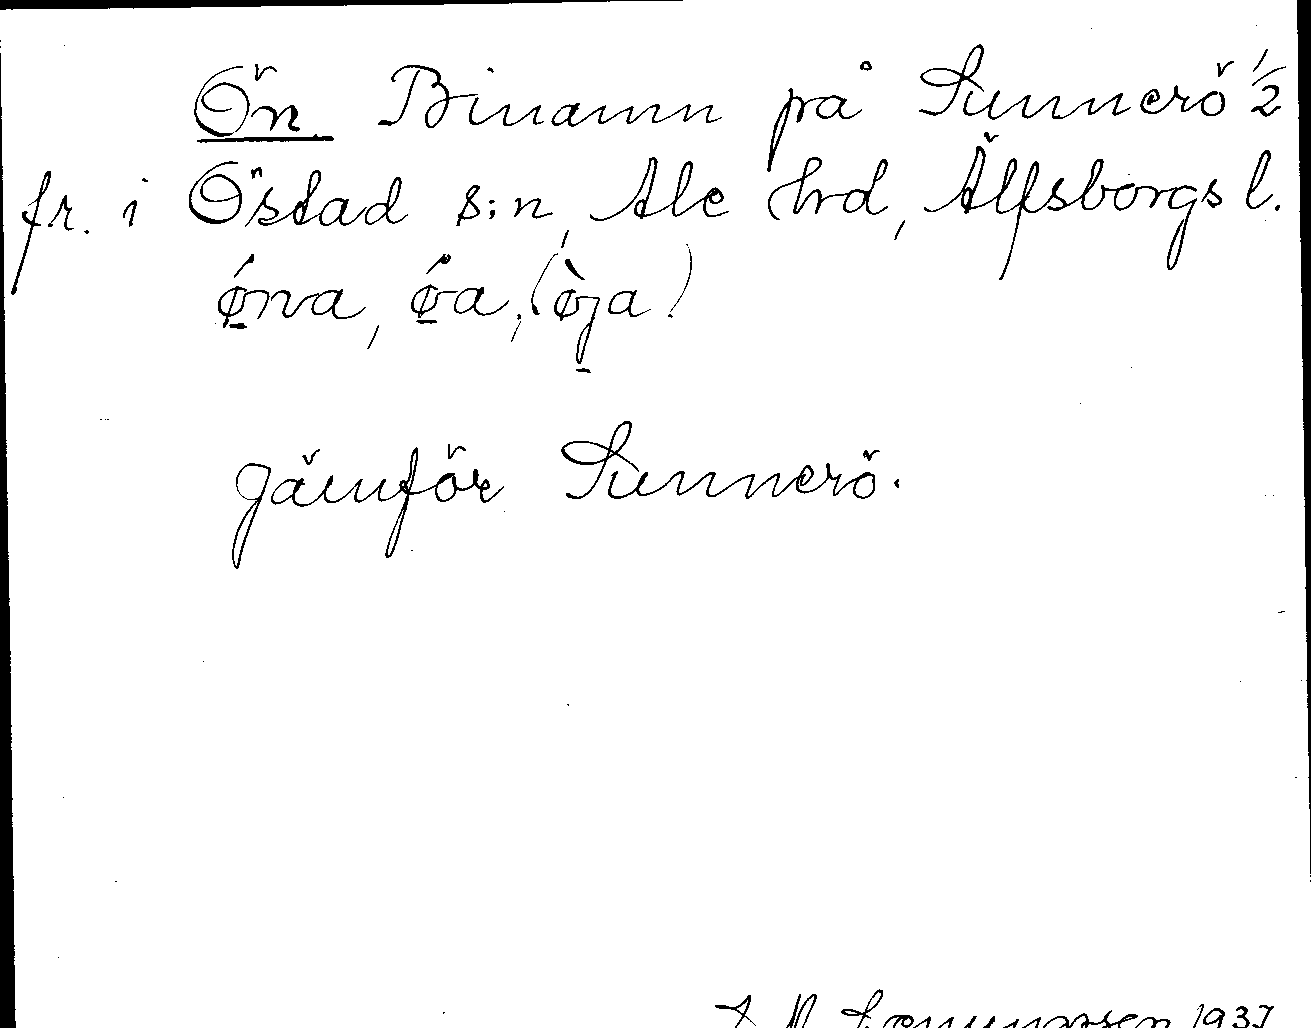 Ön. Binamn på Sunnerö 1/2
fr. i Östad s:n, Ale hrd, Älfsborgs l.
ǿna, ǿa, (øja)
Jämför Sunnerö.
1937